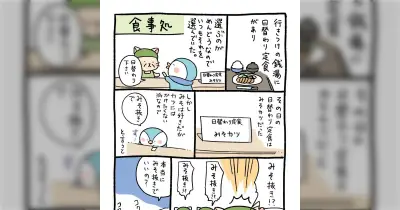 行きつけの銭湯に
日替わり定食
があり
選ぶのが
めんどうなので
いつもそれを
選んでいた。
食事処
日替わり
下さい
日替わり定食
みそカツ
その日の
日替わり定食は
みそカツだった
日替わり定食
みそカツ
しかし
みそは好きだが
カツには
かけたくない
派なので
みそ抜き
で
と言うと
みそ抜き!?
みそ抜き!?
みそ抜き!?
本当に
みそ抜きで
いいの?